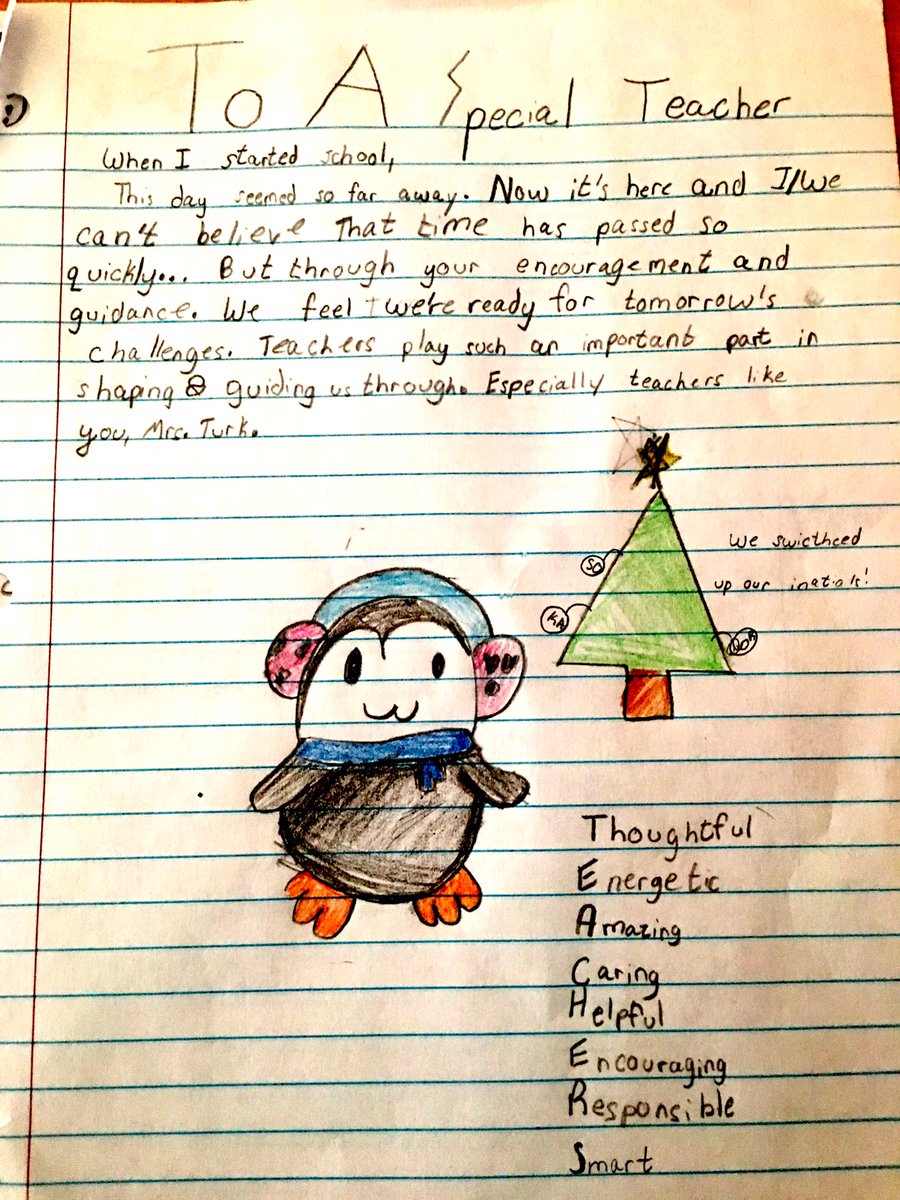 To A Special Teacher
When I started school,
This day seemed so far away. Now it's here and I/We
can't believe That time has passed so
quickly... But through your encouragement and
guidance. We feel we're ready for tomorrow's
challenges. Teachers play such an important part in
shaping guiding us through. Especially teachers like
you, Mrs. Turk.
We swicthced
up our inatials!
SO
KA
Thoughtful
Energetic
Amazing
Caring
Helpful
Encouraging
Responsible
Smart